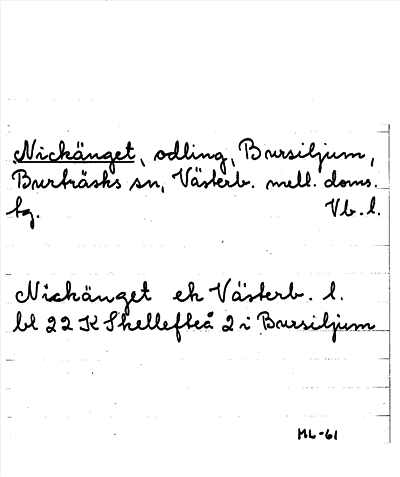 Nickänget, odling, Bursiljum,
Burträsks sn, Västerb. mell. doms.
tg. Vb. l.
Nickänget ek Västerb. l.
bl 22 K Skellefteå 2 i Bursiljum
ML-61